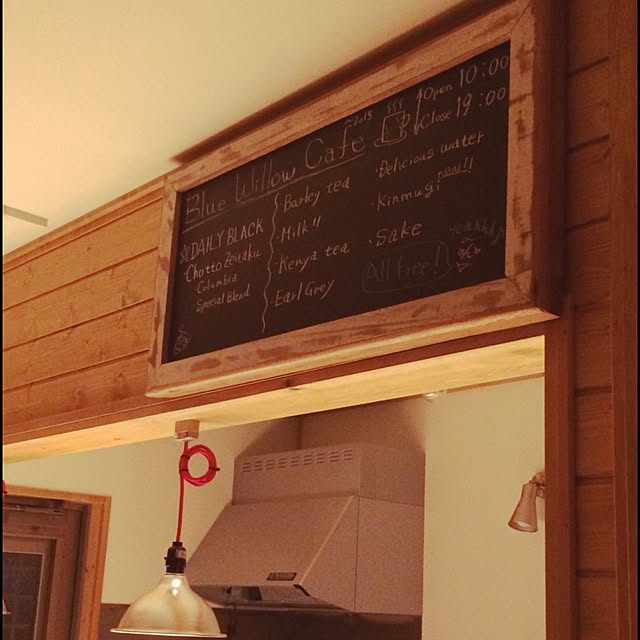 Blue Willow Cafe ~2015
Open 10:00
Close 19:00
DAILY BLACK
Chotto Zeitaku
Columbia
Special Blend
Barley tea
・Milk!!
Kenya tea
Earl Grey
・Delicious water
・Kinmugi now!!
・Sake
All Free!
yeahhh